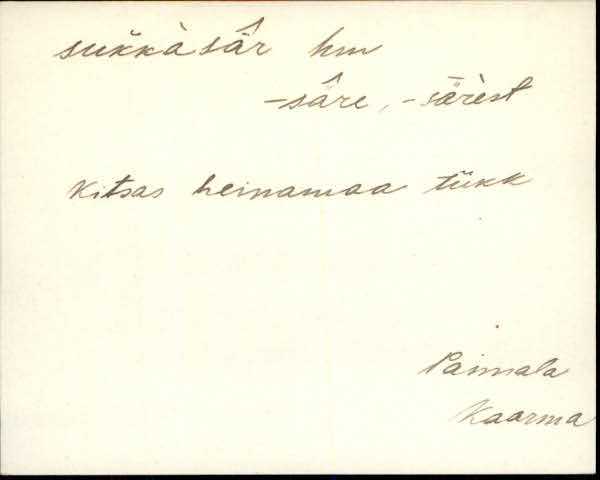 sukkàsä̂r hm
-sä̂re, -särèst
Kitsas heinamaa tükk
Paimala
Kaarma